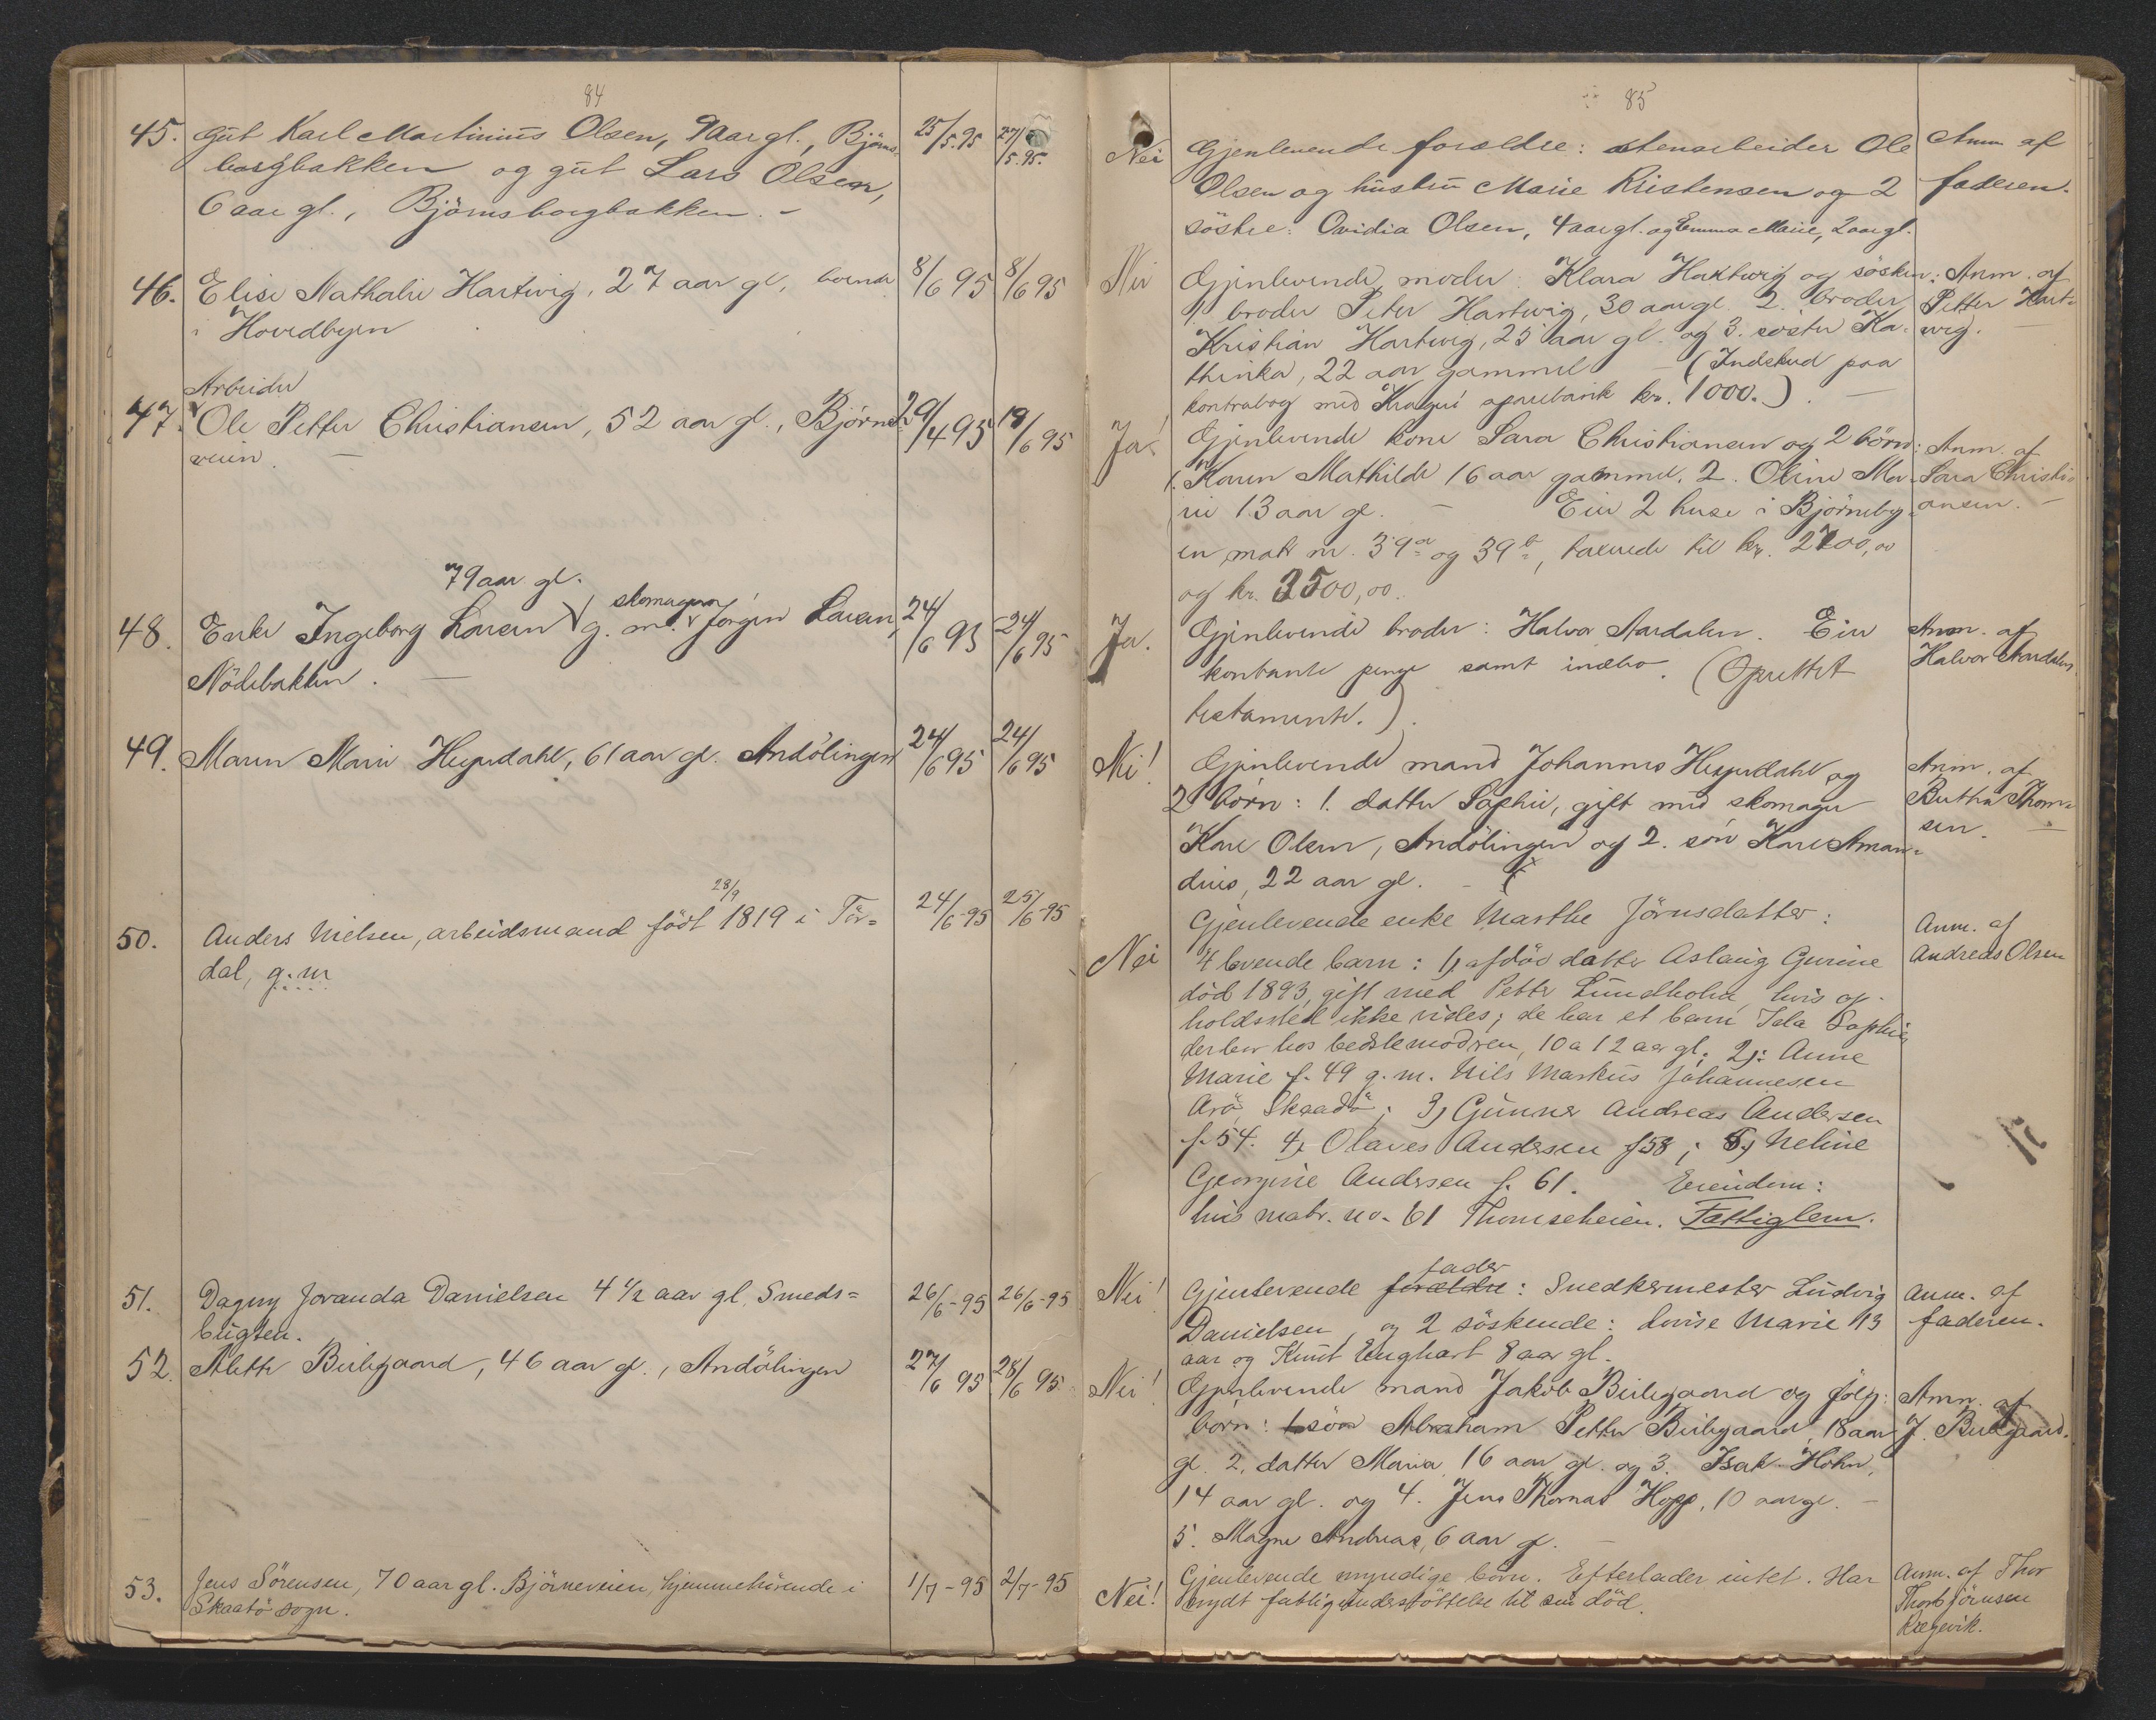 84
45. Gut Karl Martinius Olsen, 9 aar gl., Björns-
borgbakken og gut Lars Olsen,
6 aar gl., Björnsborgbakken. -
25/5.95 27/5.95.
46. Elise Nathalie Hartwig, 27 aar gl, boende
i Hovedbyen
8/6 95 8/6 95
Arbeider
47. Ole Petter Christiansen, 52 aar gl., Björne-
veien. -
29/4 95 19/6 95
79 aar gl.
skomager
48. Enke Ingeborg Larsen g. m. Jörgen Larsen,
Nödebakken. -
24/6 95 24/6 95
49. Maren Marie Heyerdahl, 61 aar gl. Andölingen
24/6 95 24/6 95
28/9
50. Anders Nielsen, arbeidsmand födt 1819 i Tör=
dal, g. m
24/6-95 25/6-95
51. Dagny Jovanda Danielsen 4 1/2 aar gl. Smeds=
bugten.
26/6-95 26/6-95
52. Alette Beilegaard, 46 aar gl., Andölingen
27/6 95 28/6 95
53. Jens Sörensen, 70 aar gl. Björneveien, hjemmehörende i
Skaatö sogn.
1/7-95 2/7-95
85
Nei Gjenlevende foreldre: stenarbeider Ole
Olsen og hustru Marie Kristensen og 2
söstre: Ovidia Olsen, 4 aar gl. og Emma Marie, 2 aar gl.
Anm af
faderen.
Nei Gjenlevende moder: Klara Hartwig og sösken:
1. broder Peter Hartwig, 30 aar gl. 2. broder
Kristian Hartwig, 25 aar gl. og 3. söster Ka-
thinka, 22 aar gammel - (Indskud paa
kontrabog med Kragerö sparebank kr. 1000.). -
Anm. af
Petter Hart-
wig. -
Ja! Gjenlevende kone Sara Christiansen og 2 börn:
1. Karen Mathilde 16 aar gammel. 2. Oline Ma-
rie 13 aar gl. - Eier 2 huse i Björneby-
en matr nr. 39a og 39b, taxerede til kr. 2700,00
og kr. 3500,00.
Anm. af
Sara Christi-
ansen. -
Ja. Gjenlevende broder: Halvor Aardalen. Eier
kontante penge samt indbo. (Oprettet
testamente.).
Anm. af
Halvor Aardalen.
Nei! Gjenlevende mand Johannes Heyerdahl og
2 börn: 1. datter Sophie, gift med skomager
Karl Olsen, Andölingen og 2. sön Karl Aman-
dius, 22 aar gl. -
Anm. af
Berthe Thom-
sen. -
Nei Gjenlevende enke Marthe Jörnsdatter:
4 levende barn: 1) afdöd datter Aslaug Gurine
död 1893, gift med Petter Lundholm, hvis op-
holdssted ikke vides; de har et barn Ida Sophie,
der bor hos bedstemodren, 10 a 12 aar gl; 2): Anne
Marie f. 49 g. m. Nils Markus Johannesen
Arö, Skaadö; 3) Gunner Andreas Andersen
f. 54. 4) Olaves Andersen f 58; 5) Neline
Georgine Andersen f. 61. Eiendom:
hus matr. no. 61 Thomseheien. Fattiglem.
Anm. af
Andreas Olsen
fader
Nei! Gjenlevende forældre: Snedkermester Ludvig
Danielsen og 2 söskende: Lovise Marie 13
aar og Knut Enghart 8 aar gl.
Anm. af
faderen.
Nei! Gjenlevende mand Jakob Beilegaard og fölg:
börn: 1. sön Abraham Petter Beilegaard, 18 aar
gl. 2. datter Maria 16 aar gl. og 3. Isak Höhn,
14 aar gl. og 4. Jens Thomas Hopp, 10 aar gl. -
5. Magne Andreas, 6 aar gl. -
Anm. af
J. Beilegaard.
Nei! Gjenlevende myndige börn. Efterlader intet. Har
nydt fattigunderstöttelse til sin död.
Anm. af Thor
Thorbjörnsen